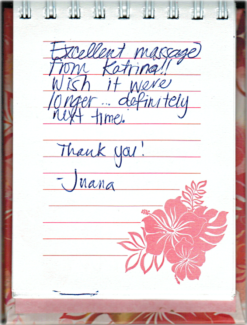 Excellent massage
from Katrina!!
Wish it were
longer... definitely
next time.
Thank you!
-Juana